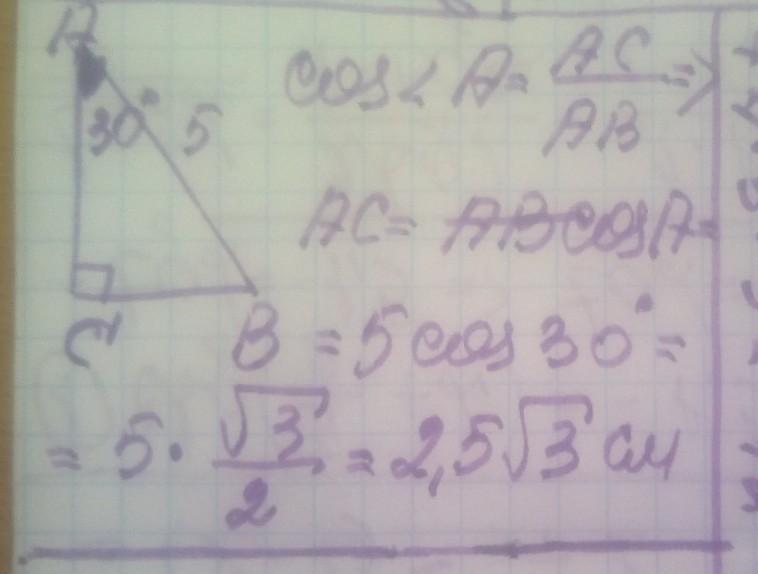 A
30° 5
C B
cos∠A = AC/AB =>
AC = ABcosA =
= 5 cos 30° =
= 5 · √3/2 = 2,5√3 см